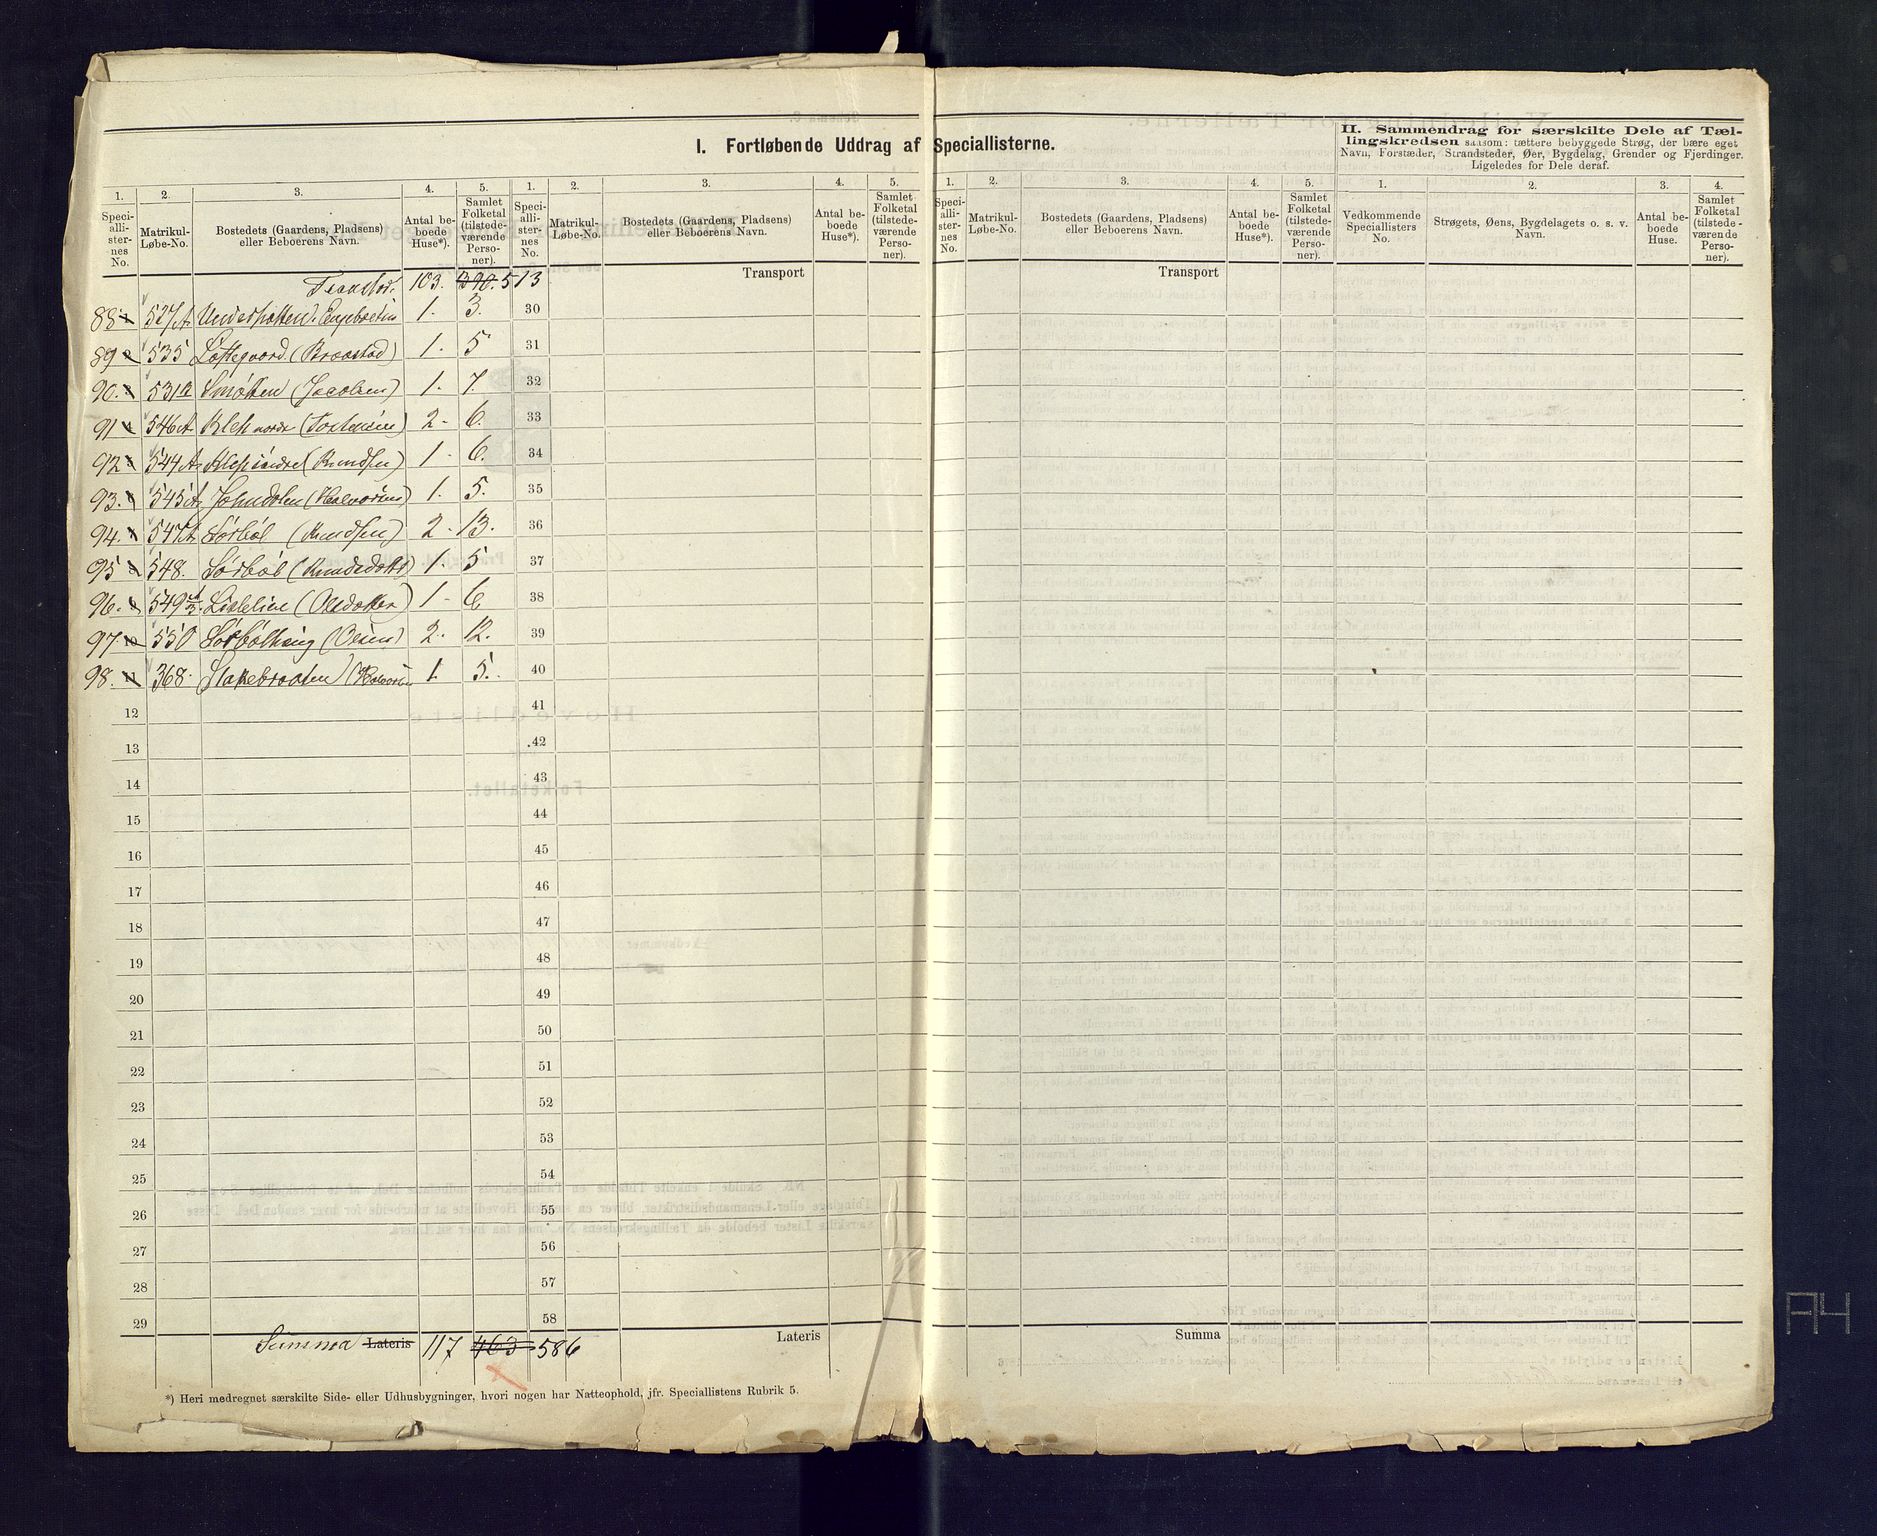 I. Fortløbende Uddrag af Speciallisterne.
II. Sammendrag for særskilte Dele af Tæl-
lingskredsen saasom: tættere bebyggede Strøg, der bære eget
Navn, Forstæder, Strandsteder, Øer, Bygdelag, Grender og Fjerdinger.
Ligeledes for Dele deraf.
1. 2. 3. 4. 5. 1. 2. 3. 4. 5. 1. 2. 3. 4. 5. 1. 2. 3. 4.
Speciallisternes No. Matrikul-Løbe-No. Bostedets (Gaardens, Pladsens) eller Beboerens Navn. Antal beboede Huse*). Samlet Folketal (tilstedeværende Personer).
Speciallisternes No. Matrikul-Løbe-No. Bostedets (Gaardens, Pladsens) eller Beboerens Navn. Antal beboede Huse*). Samlet Folketal (tilstedeværende Personer).
Speciallisternes No. Matrikul-Løbe-No. Bostedets (Gaardens, Pladsens) eller Beboerens Navn. Antal beboede Huse*). Samlet Folketal (tilstedeværende Personer).
Vedkommende Speciallisters No. Strøgets, Øens, Bygdelagets o. s. v. Navn. Antal beboede Huse. Samlet Folketal (tilstedeværende Personer).
103. 390. 513 Transport Transport
88. 527A 1. 3. 30
89 535 Løftegaard (Braastad) 1. 5 31
90. 531 Smøtten (Jacobsen) 1. 7. 32
91 546A Kleh nordr (Torstensen) 2- 6. 33
92 544A (Knudsen) 1- 6. 34
93. 545A Johndalen (Halvorsen) 1. 5. 35
94. 547A Sørbøl (Knudsen) 2- 13. 36
95 548. Sørbøl (Knudsdatter) 1. 5 37
96. 549 Lislelien (Olsdatter) 1- 6 38
97 10 550 Sørbølhaug (Olsen) 2. 12. 39
98. 11 368. Stakebraaten (Halvorsen 1. 5. 40
12 41
13 42
14 43
15 44
16 45
17 46
18 47
19 48
20 49
21 50
22 51
23 52
24 53
25 54
26 55
27 56
28 57
29 58
Summa Lateris 117 463 586 Lateris Summa
*) Heri medregnet særskilte Side- eller Udhusbygninger, hvori nogen har Natteophold, jfr. Speciallistens Rubrik 5.
A4